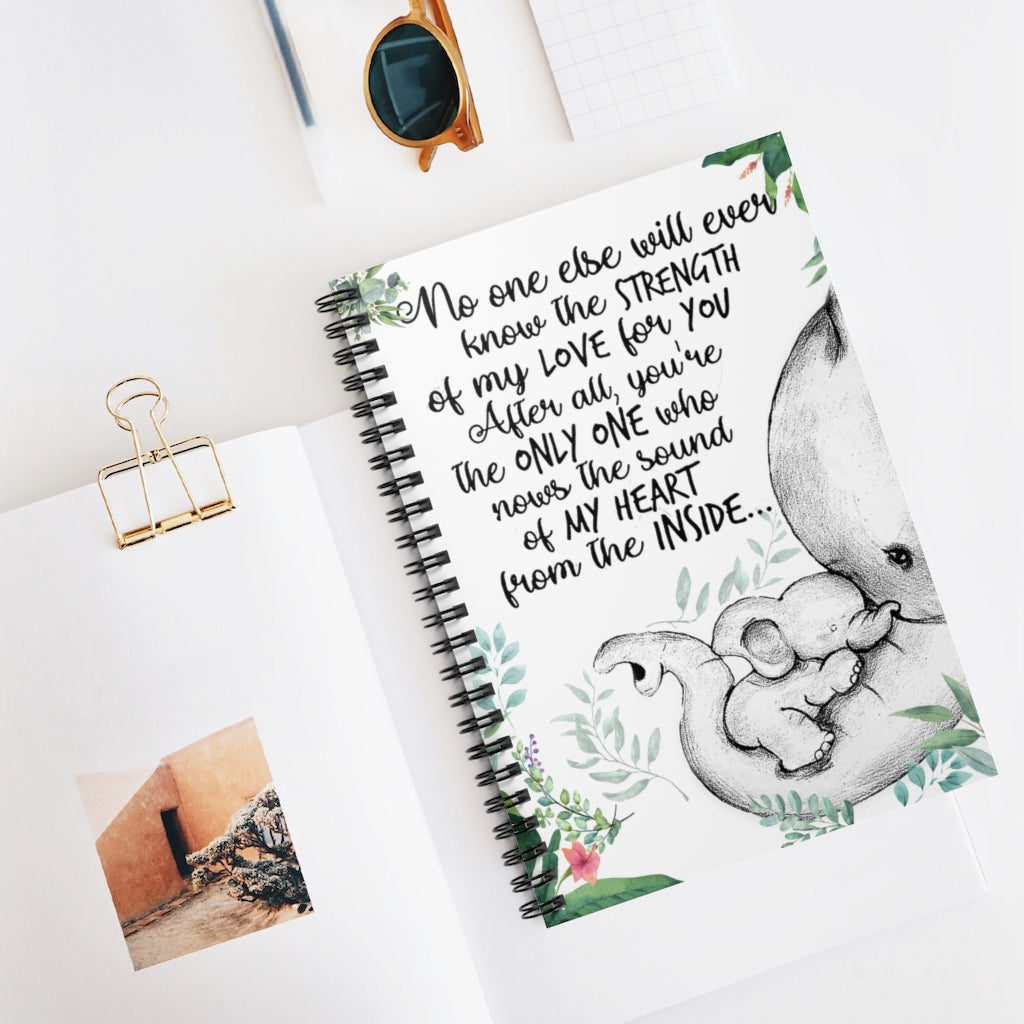 No one else will ever
know the STRENGTH
of my LOVE for YOU
After all, you're
the ONLY ONE who
nows the sound
of MY HEART
from the INSIDE...